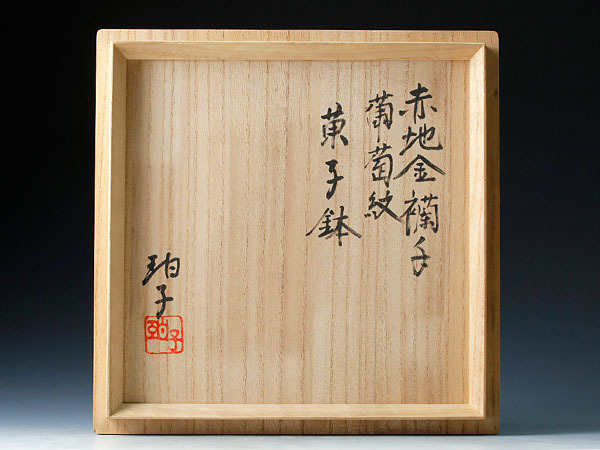 赤地金襴手
葡萄紋
菓子鉢
珀子